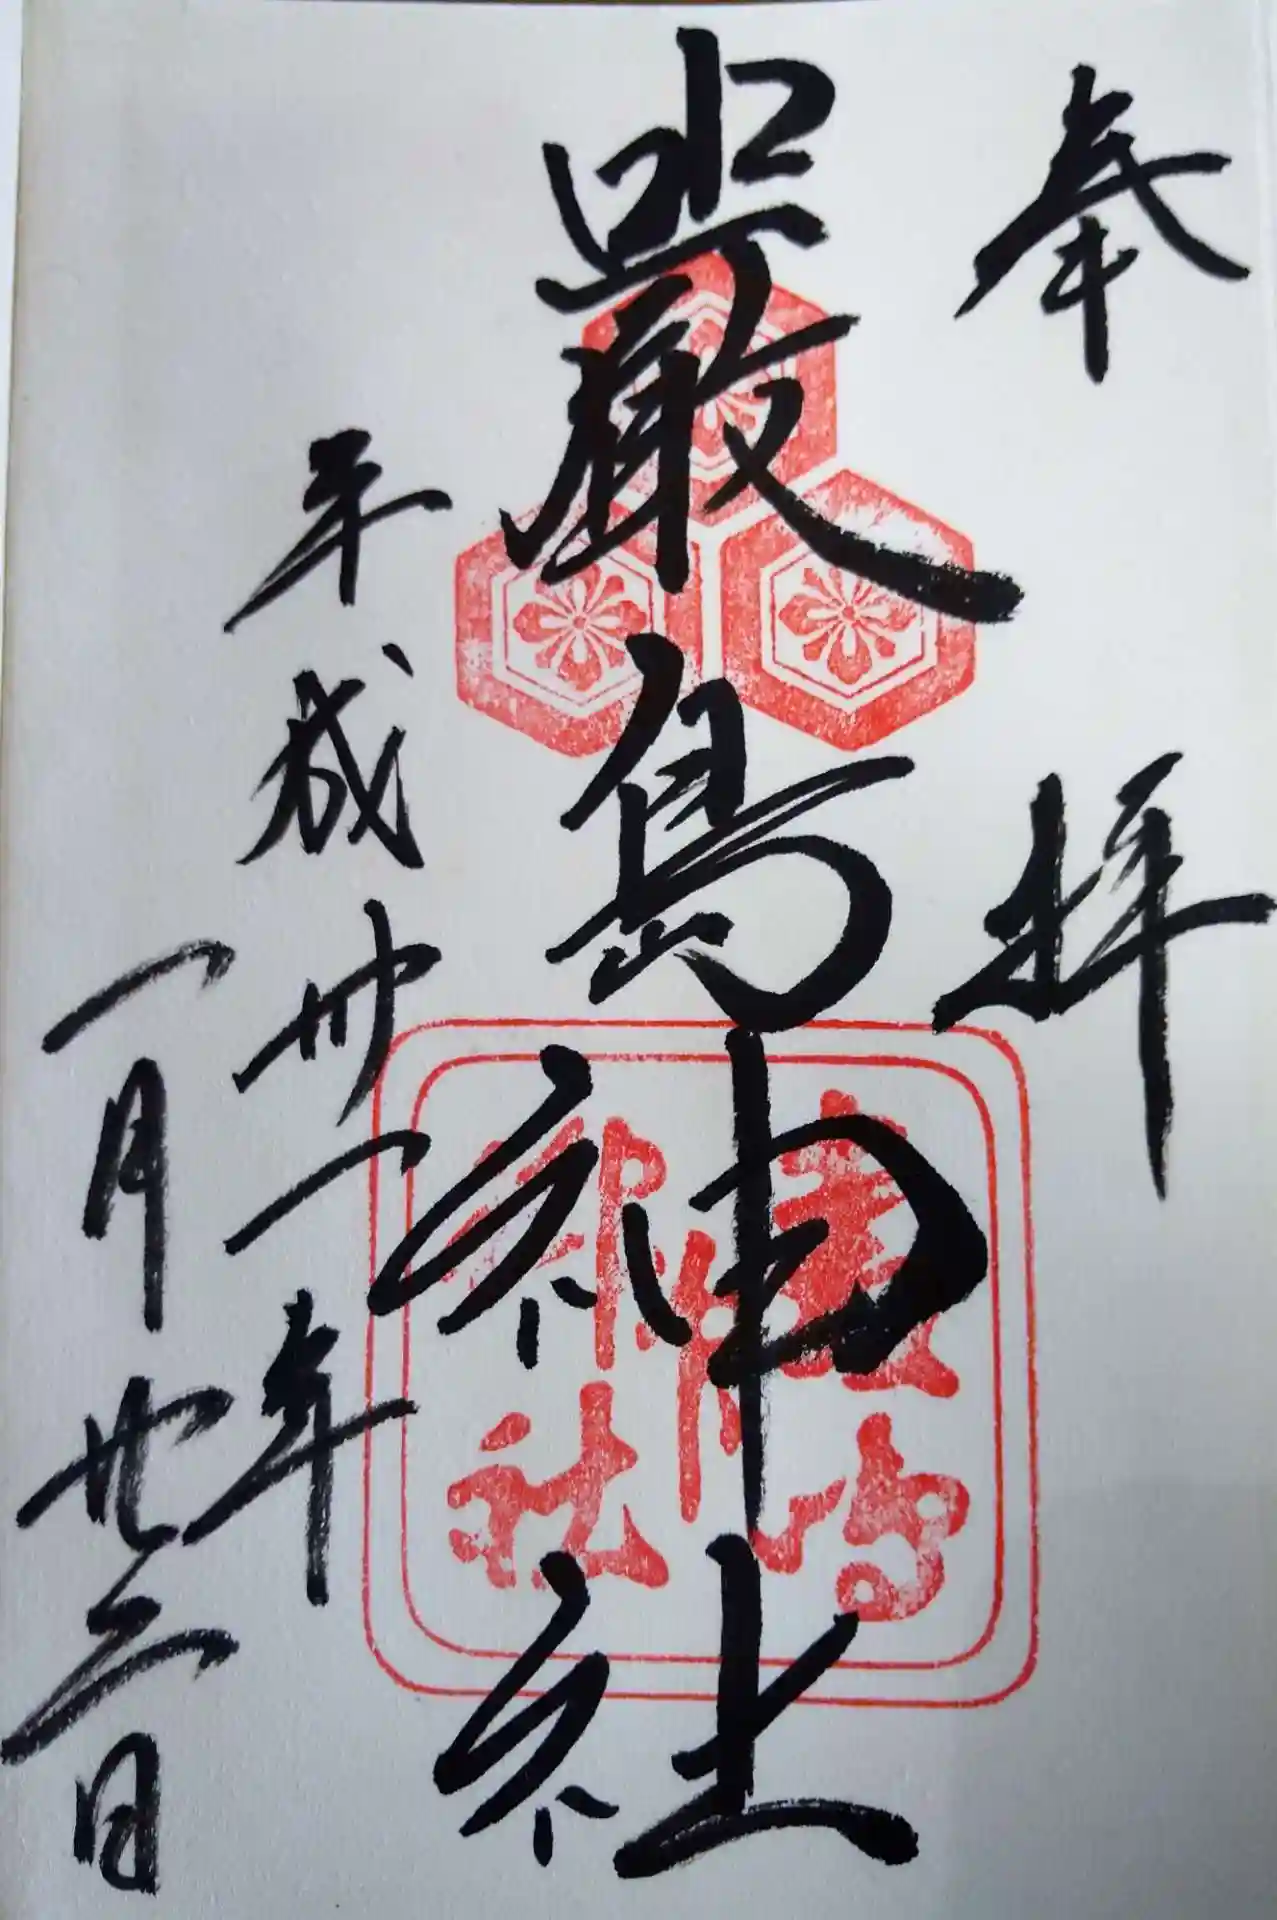 奉拝
厳島神社
平成卅一年
一月廿三日
厳島
神社